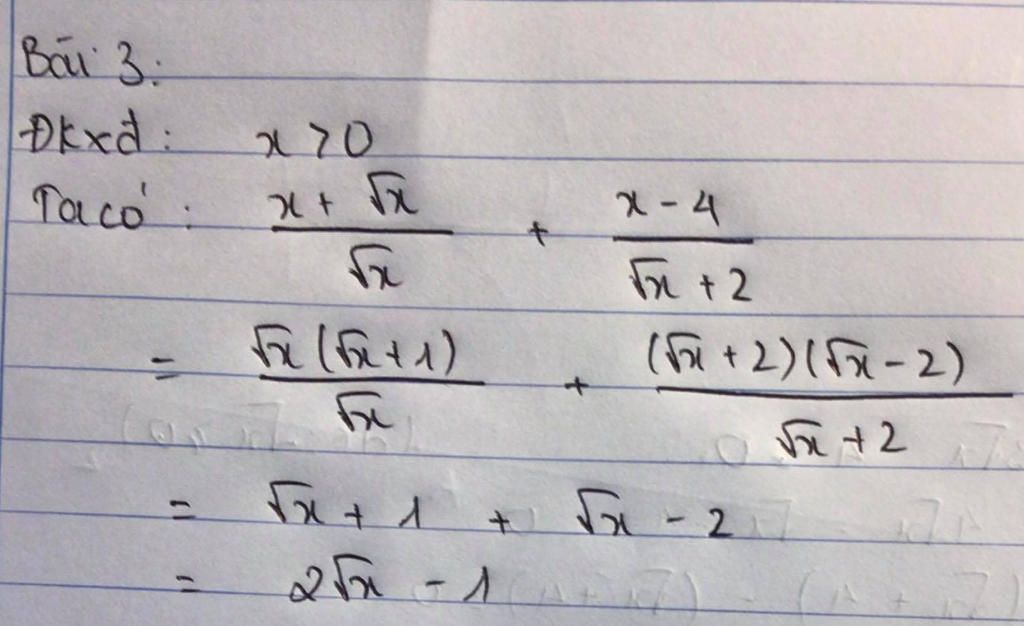 Bài 3:
Đkxđ: x > 0
Ta có: \frac{x + \sqrt{x}}{\sqrt{x}} + \frac{x - 4}{\sqrt{x} + 2}
= \frac{\sqrt{x}(\sqrt{x} + 1)}{\sqrt{x}} + \frac{(\sqrt{x} + 2)(\sqrt{x} - 2)}{\sqrt{x} + 2}
= \sqrt{x} + 1 + \sqrt{x} - 2
= 2\sqrt{x} - 1